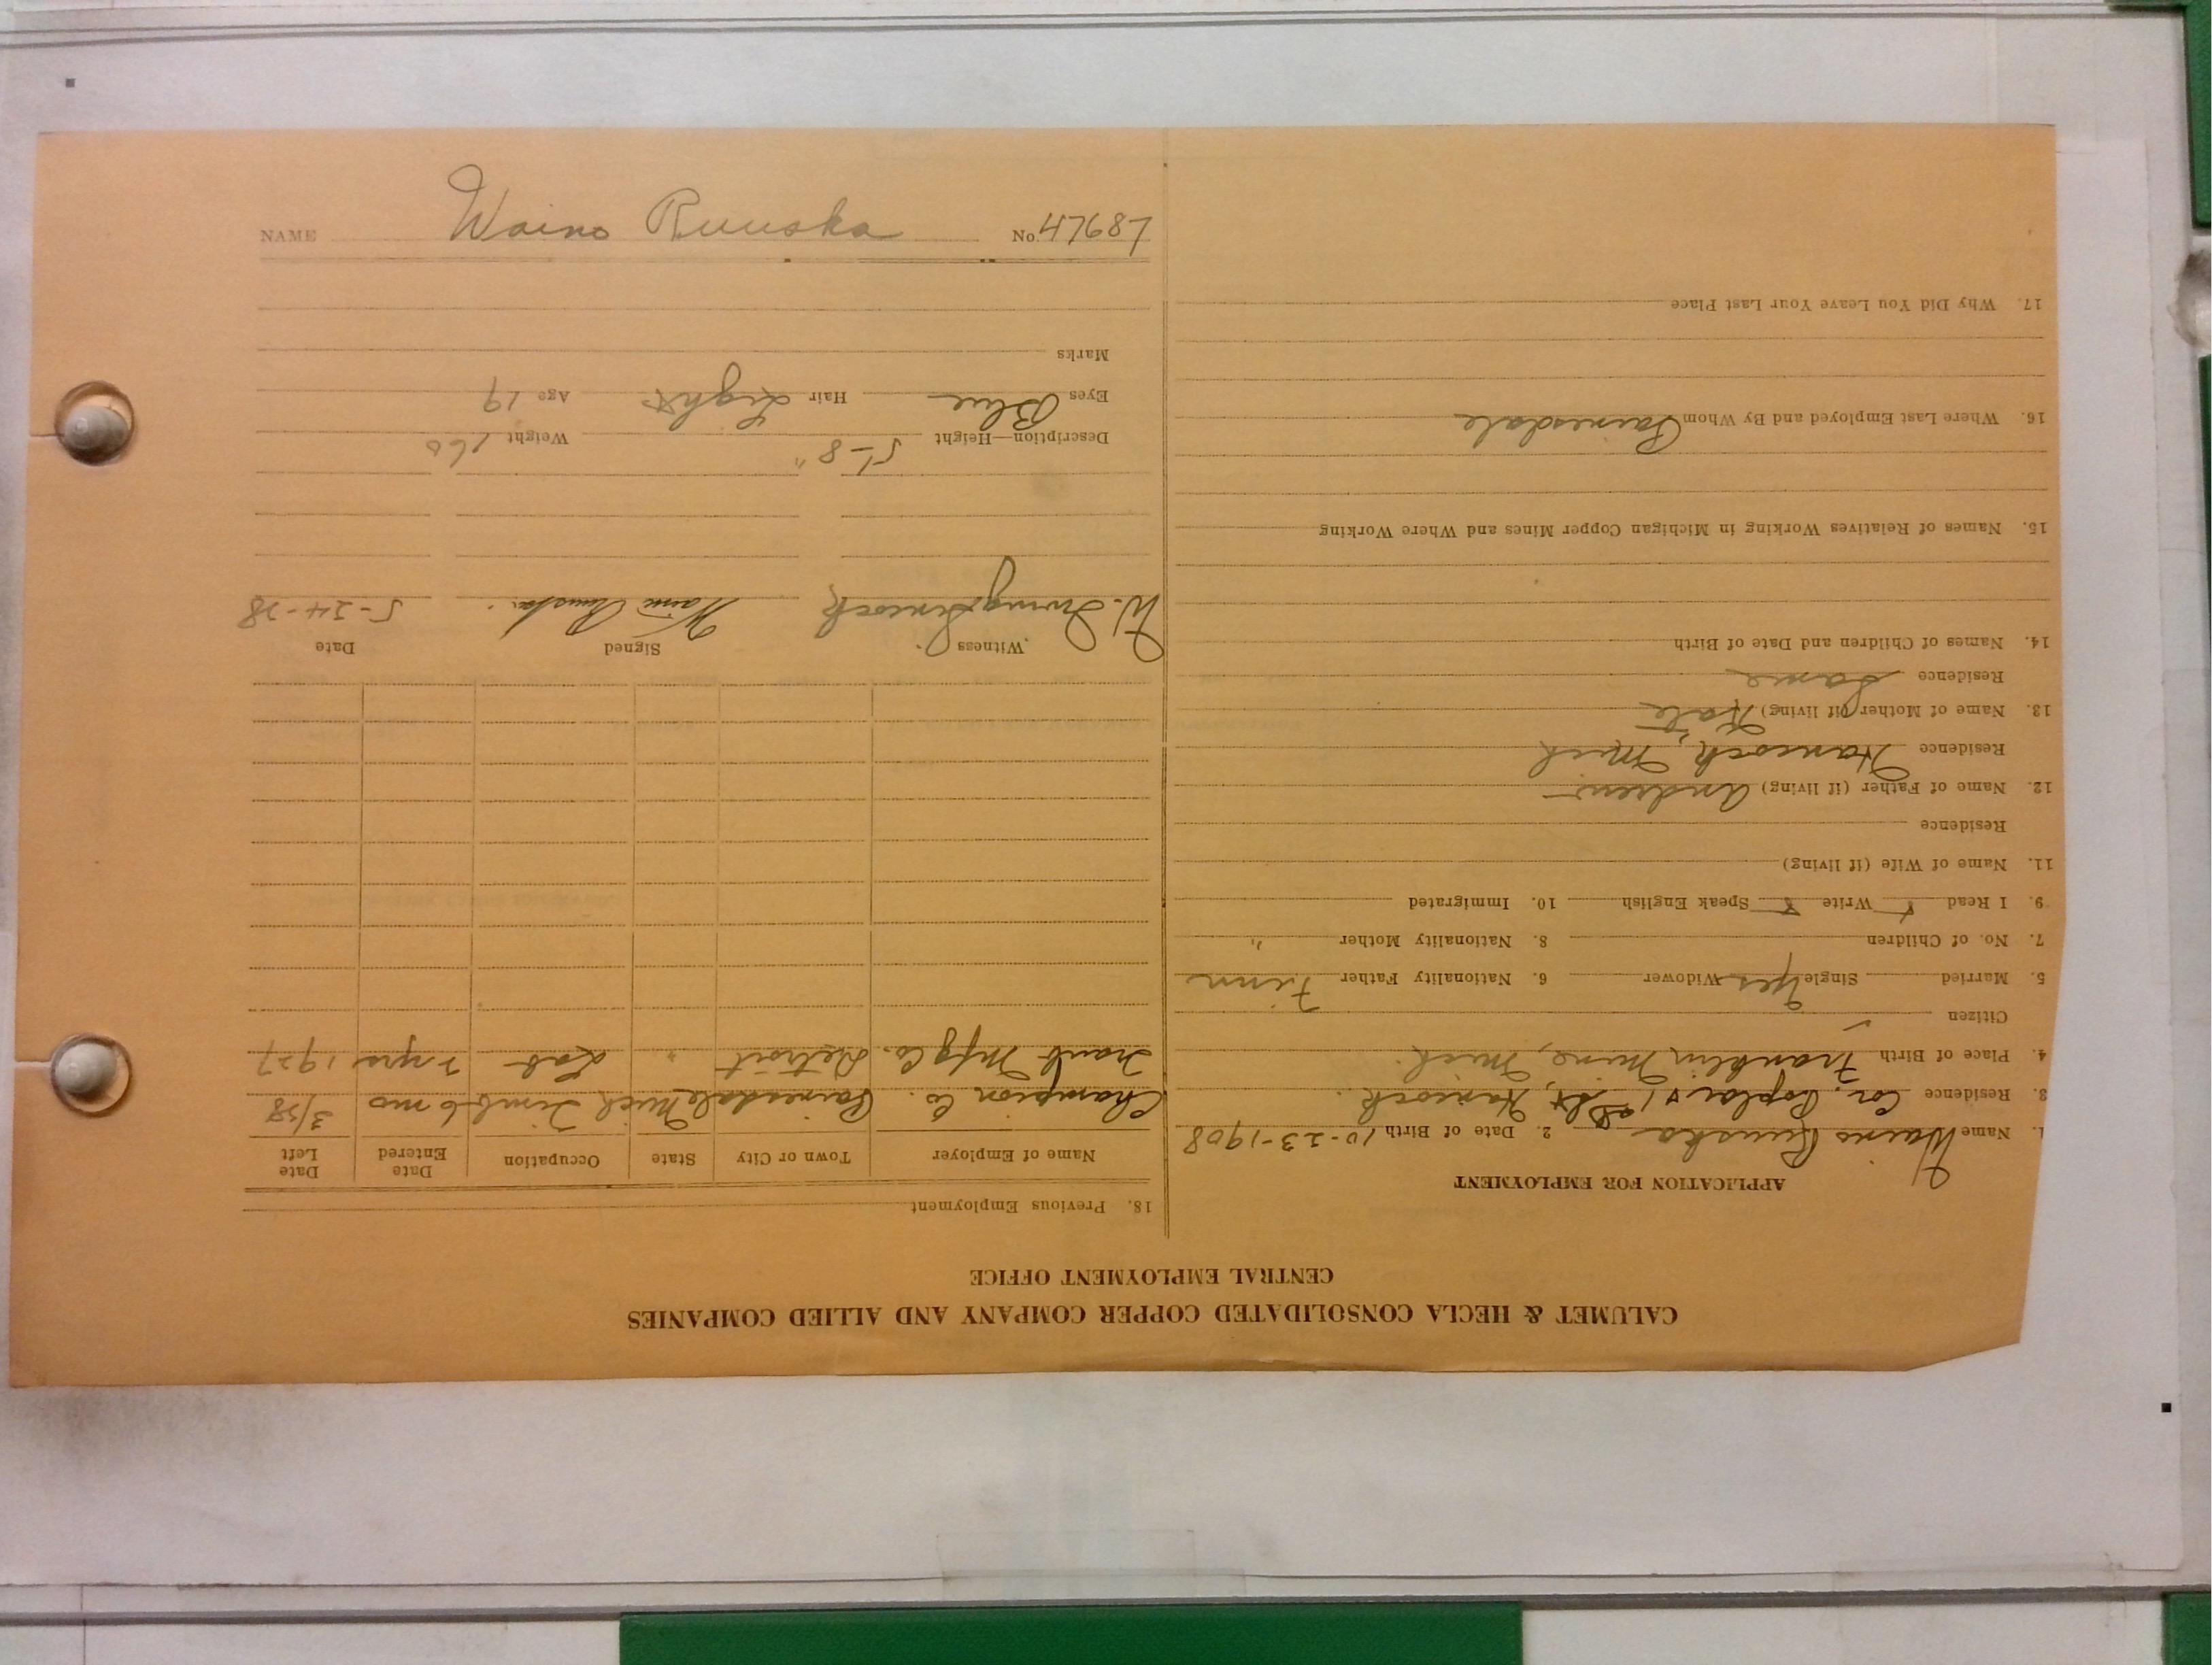 CALUMET & HECLA CONSOLIDATED COPPER COMPANY AND ALLIED COMPANIES
CENTRAL EMPLOYMENT OFFICE
APPLICATION FOR EMPLOYMENT
1. Name Waino Ruuska 2. Date of Birth 10-23-1908
3. Residence Cor. Poplar & 1st St, Hancock.
4. Place of Birth Franklin Mine, Mich.
Citizen
5. Married Single Yes Widower 6. Nationality Father Finn
7. No. of Children 8. Nationality Mother "
9. I Read Write Speak English 10. Immigrated
11. Name of Wife (if living)
Residence
12. Name of Father (if living) Andrew
Residence Hancock, Mich
13. Name of Mother (if living) Kate
Residence Same
14. Names of Children and Date of Birth
15. Names of Relatives Working in Michigan Copper Mines and Where Working
16. Where Last Employed and By Whom Painesdale
17. Why Did You Leave Your Last Place
18. Previous Employment
Name of Employer Town or City State Occupation Date Entered Date Left
Champion Co. Painesdale Mich 6 mo 3/28
Mfg Co. Detroit " Lab 1927
Witness Signed Date
W. Irving 5-24-28
Description—Height 5'-8" Weight 160
Eyes Blue Hair Light Age 19
Marks
NAME Waino Ruuska No. 47687